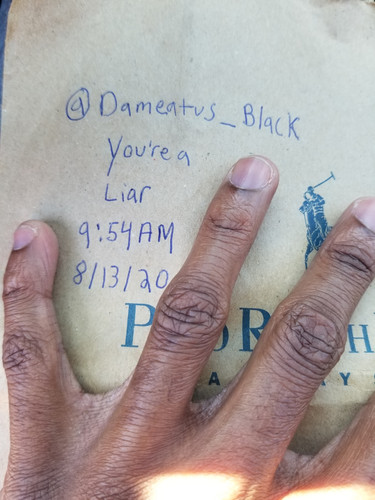 @Dameatus_Black
You're a
Liar
9:54AM
8/13/20